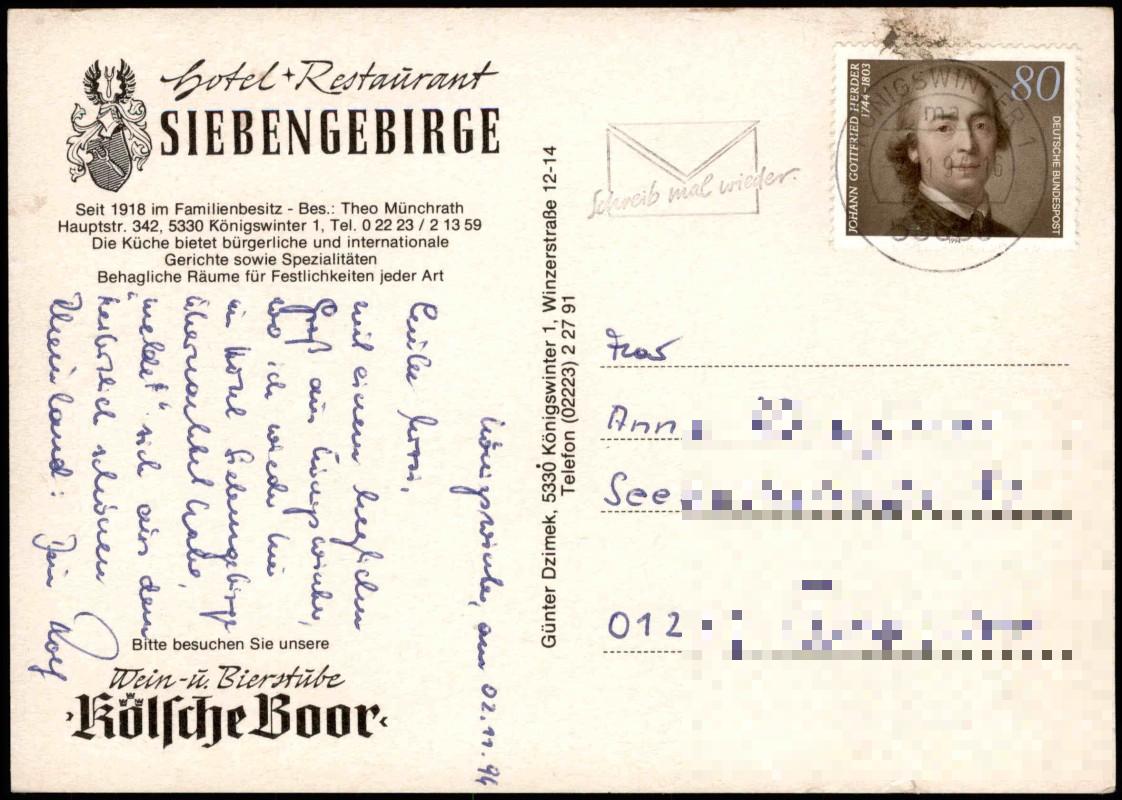 Hotel + Restaurant
SIEBENGEBIRGE
Seit 1918 im Familienbesitz - Bes.: Theo Münchrath
Hauptstr. 342, 5330 Königswinter 1, Tel. 0 22 23 / 2 13 59
Die Küche bietet bürgerliche und internationale
Gerichte sowie Spezialitäten
Behagliche Räume für Festlichkeiten jeder Art
Königswinter, am 02.11.94
mit einem herzlichen
Gruß aus Königswinter,
wo ich wieder hier
im Hotel Siebengebirge
übernachtet habe,
"meldet" sich aus dem
herbstlich schönen
Rheinland: Dein Rolf
Bitte besuchen Sie unsere
Wein- u. Bierstube
›Kölsche Boor‹
Günter Dzimek, 5330 Königswinter 1, Winzerstraße 12-14
Telefon (02223) 2 27 91
Schreib mal wieder.
KÖNIGSWINTER 1
JOHANN GOTTFRIED HERDER
1744-1803
80
DEUTSCHE BUNDESPOST
Frau
Ann
See
012